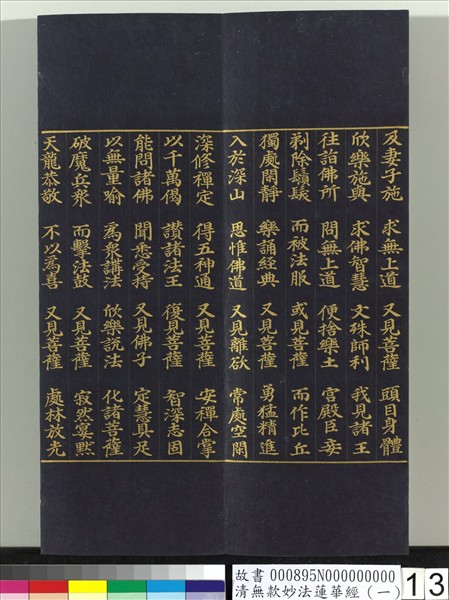 及妻子施 求無上道 又見菩薩 頭目身體
欣樂施與 求佛智慧 文殊師利 我見諸王
往詣佛所 問無上道 便捨樂土 宮殿臣妾
剃除鬚髮 而被法服 或見菩薩 而作比丘
獨處閑靜 樂誦經典 又見菩薩 勇猛精進
入於深山 思惟佛道 又見離欲 常處空閑
深修禪定 得五神通 又見菩薩 安禪合掌
以千萬偈 讚諸法王 復見菩薩 智深志固
能問諸佛 聞悉受持 又見佛子 定慧具足
以無量喻 為眾講法 欣樂說法 化諸菩薩
破魔兵眾 而擊法鼓 又見菩薩 寂然宴默
天龍恭敬 不以為喜 又見菩薩 處林放光
故書 000895N000000000
清無款妙法蓮華經(一)
13